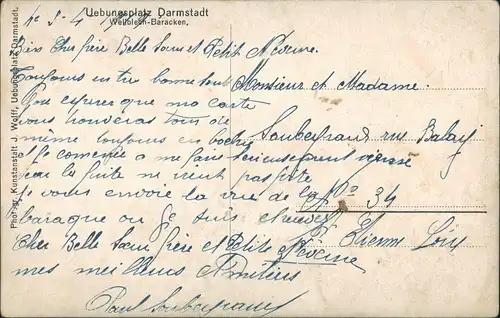 Uebungsplatz Darmstadt
Wellblech-Baracken.
Photogr. Kunstanstalt J. Wolff, Uebungsplatz Darmstadt.
Bien Cher frère Belle Sœur et Petit
Toujours en très bonne santé
que ma carte
vous trouveras tous de
même toujours en
Je comence a me faire serieusement
car la fuite ne vient pas vite
Je vous envoie la vue de la
baraque ou Je suis
Cher Belle Sœur frère et Petite
mes meilleurs Amitiés
Paul Soubeyrand
Monsieur et Madame
Soubeyrand rue Balay
No 34
St Etienne Loire